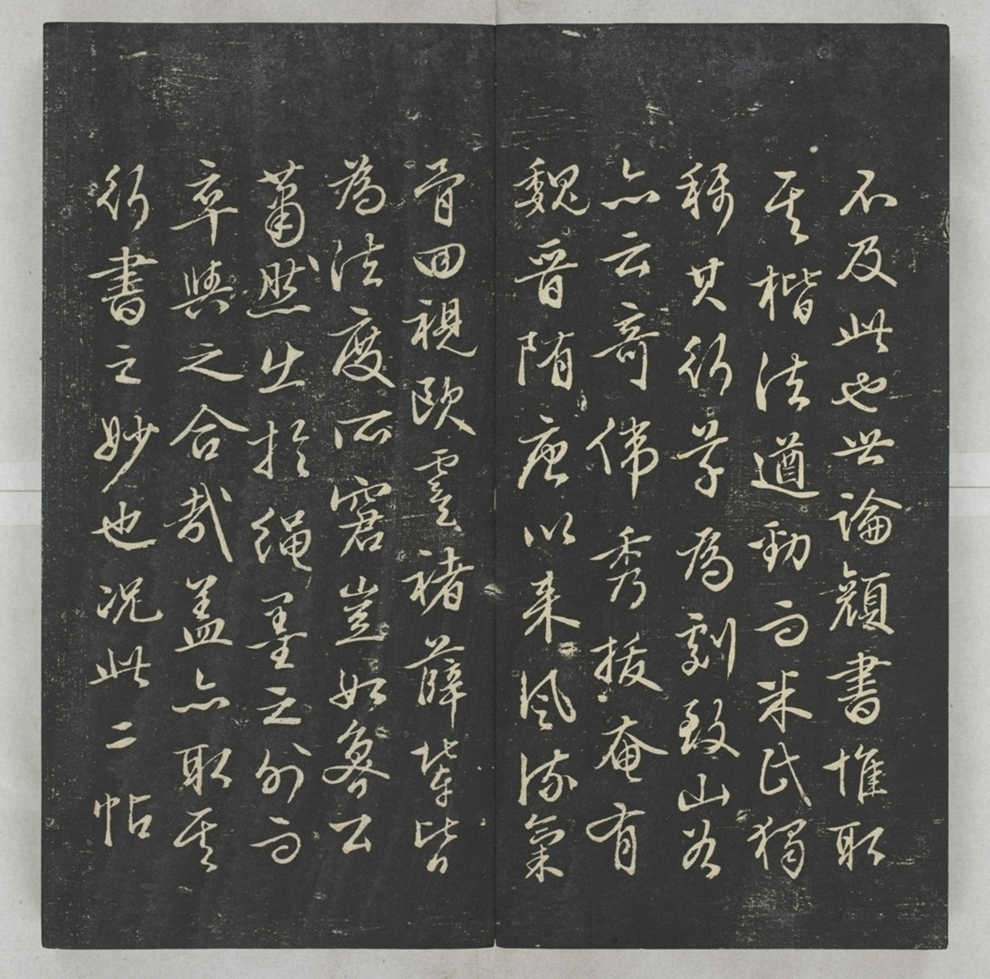 不及此也世論顏書惟取
其楷法遒勁而米氏獨
稱其行草為劇致山谷
亦云奇偉秀拔奄有
魏晉隋唐以來風流氣
骨回視歐虞褚薛輩皆
為法度所窘豈如魯公
蕭然出於繩墨之外而
卒與之合哉蓋亦取其
行書之妙也况此二帖